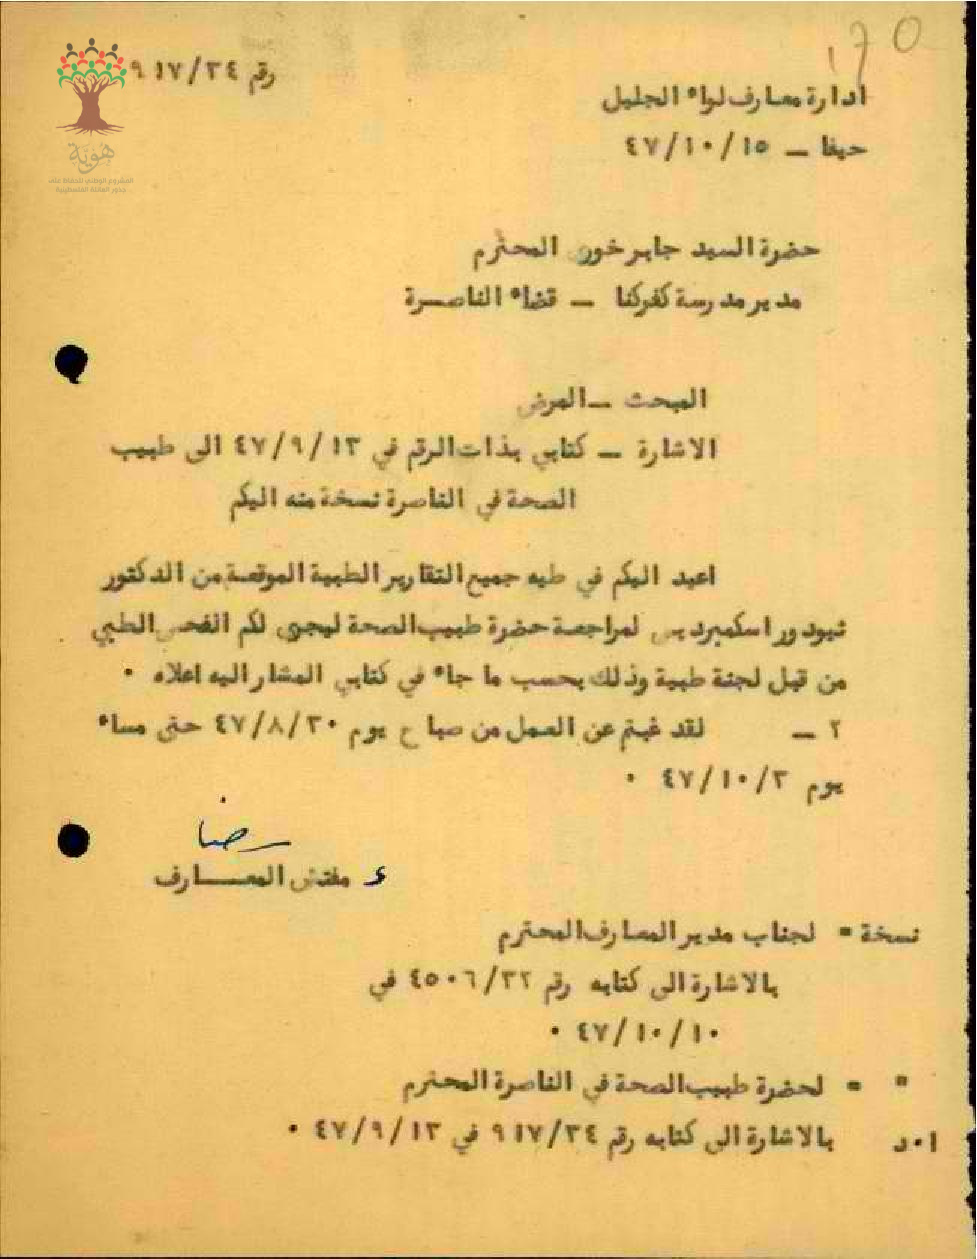 ١٧٥
رقم ٩١٧/٣٤
ادارة معارف لواء الجليل
حيفا – ٤٧/١٠/١٥
هوية
المشروع الوطني للحفاظ على
جذور العائلة الفلسطينية
حضرة السيد جابر خوري المحترم
مدير مدرسة كفركنا – قضاء الناصرة
المبحث – المرض
الاشارة – كتابي بذات الرقم في ٤٧/٩/١٣ الى طبيب
الصحة في الناصرة نسخة منه اليكم
اعيد اليكم في طيه جميع التقارير الطبية الموقعة من الدكتور
ثيودور اسكمبرديس لمراجعة حضرة طبيب الصحة ليجرى لكم الفحص الطبي
من قبل لجنة طبية وذلك بحسب ما جاء في كتابي المشار اليه اعلاه ٠
٢ – لقد غبتم عن العمل من صباح يوم ٤٧/٨/٣٠ حتى مساء
يوم ٤٧/١٠/٢ ٠
رضا
ء مفتش المعـــارف
نسخة = لجناب مدير المعارف المحترم
بالاشارة الى كتابه رقم ٤٥٠٦/٣٢ في
٤٧/١٠/١٠ ٠
" = لحضرة طبيب الصحة في الناصرة المحترم
ا٠د بالاشارة الى كتابه رقم ٩١٧/٣٤ في ٤٧/٩/١٣ ٠